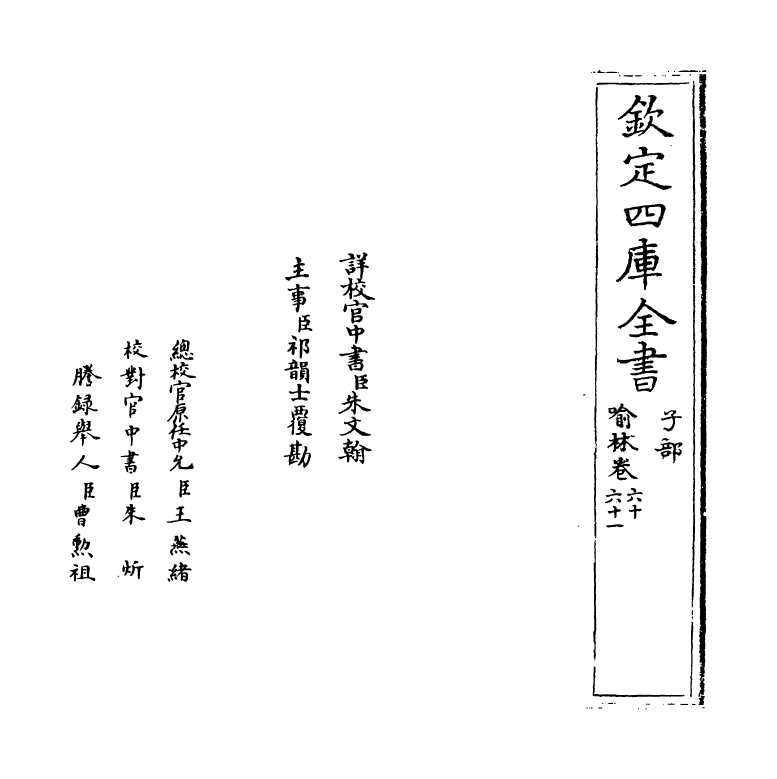 欽定四庫全書
子部
喻林卷六十
六十一
詳校官中書臣朱文翰
主事臣祁韻士覆勘
總校官原任中允臣王燕緒
校對官中書臣朱炘
謄錄舉人臣曹勲祖